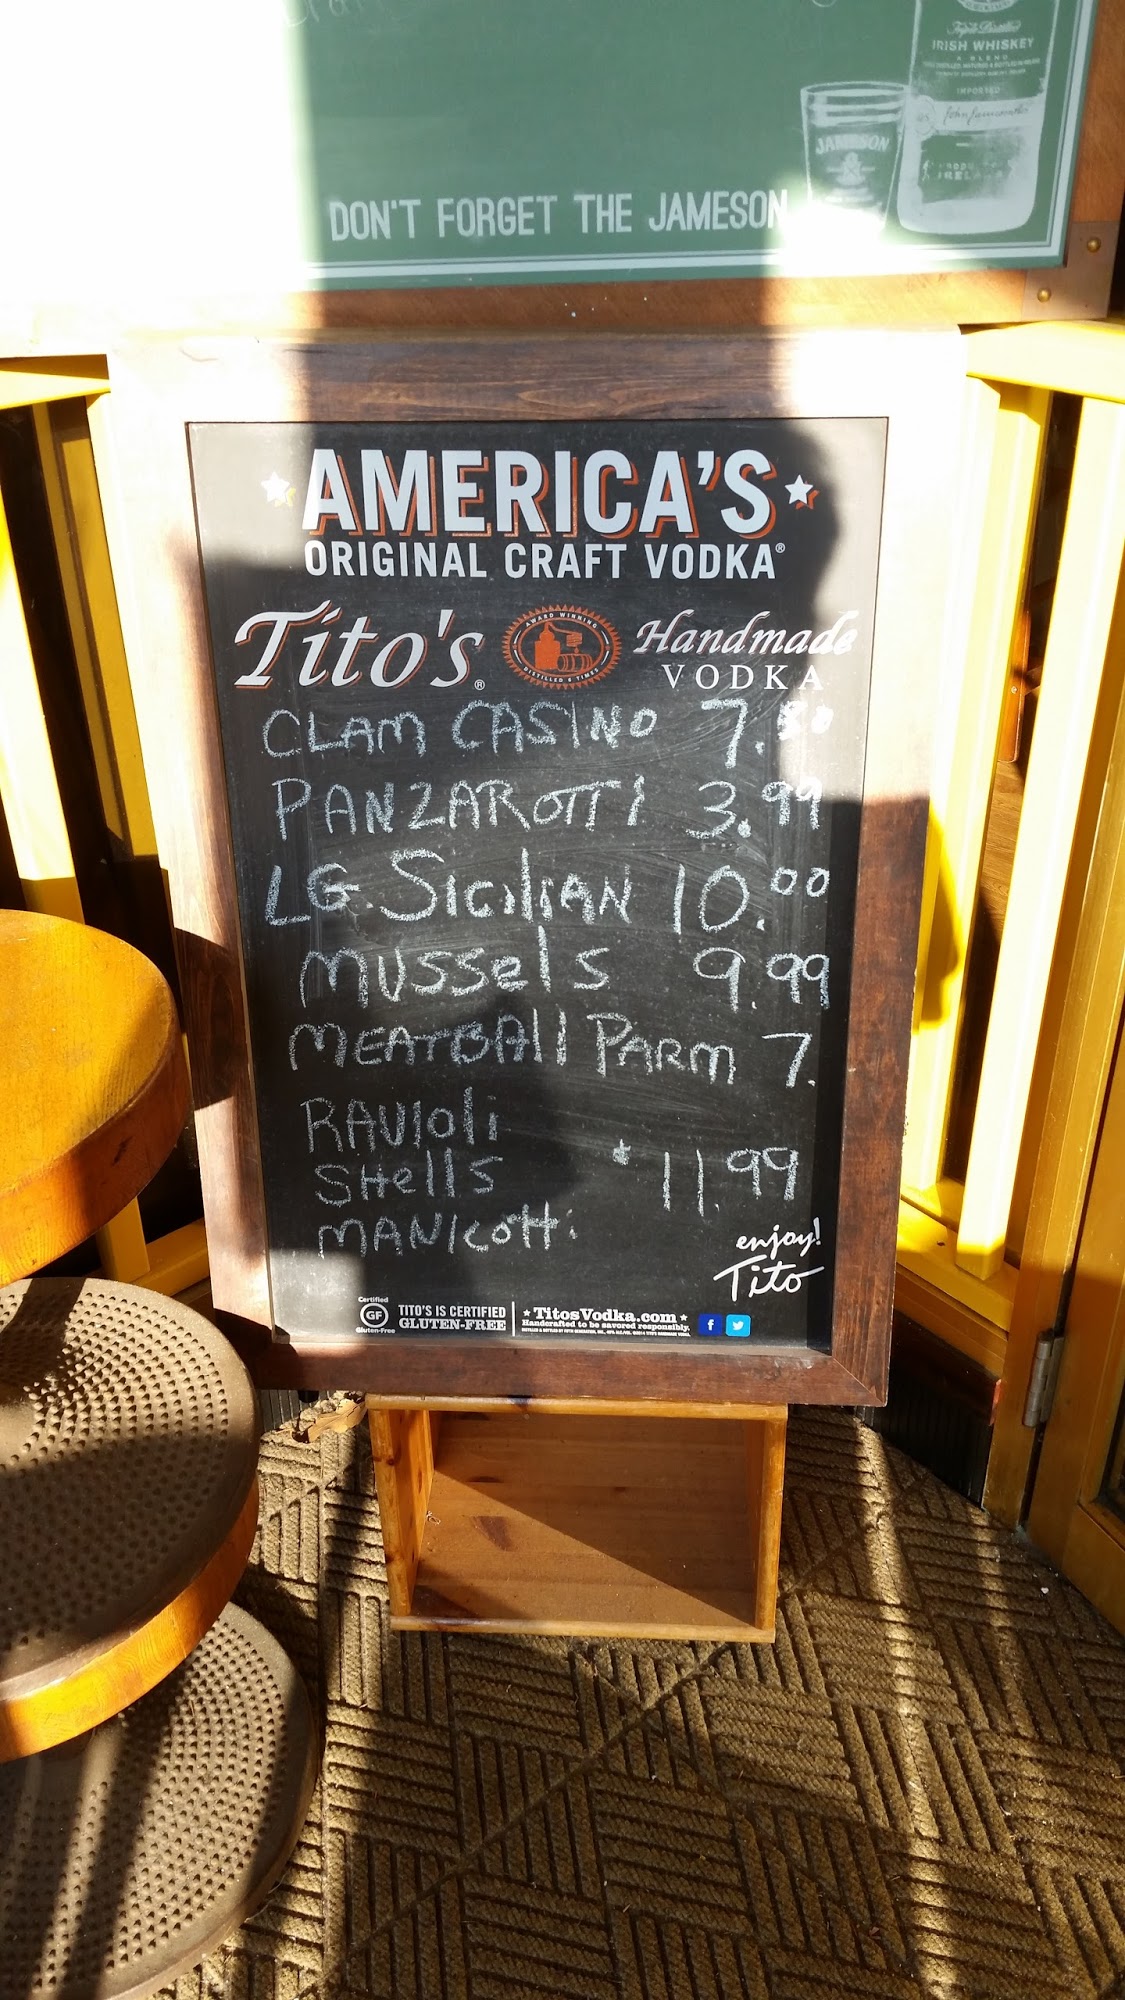 Triple Distilled
IRISH WHISKEY
A BLEND
IMPORTED
John Jameson
JAMESON
DON'T FORGET THE JAMESON
AMERICA'S
ORIGINAL CRAFT VODKA®
Tito's® AWARD WINNING DISTILLED 6 TIMES Handmade
VODKA
CLAM CASINO 7.50
PANZAROTTI 3.99
LG. SICILIAN 10.00
MUSSELS 9.99
MEATBALL PARM 7.
RAVIOLI
SHELLS $11.99
MANICOTTI
enjoy!
Tito
Certified GF Gluten-Free
TITO'S IS CERTIFIED
GLUTEN-FREE
TitosVodka.com
Handcrafted to be savored responsibly.